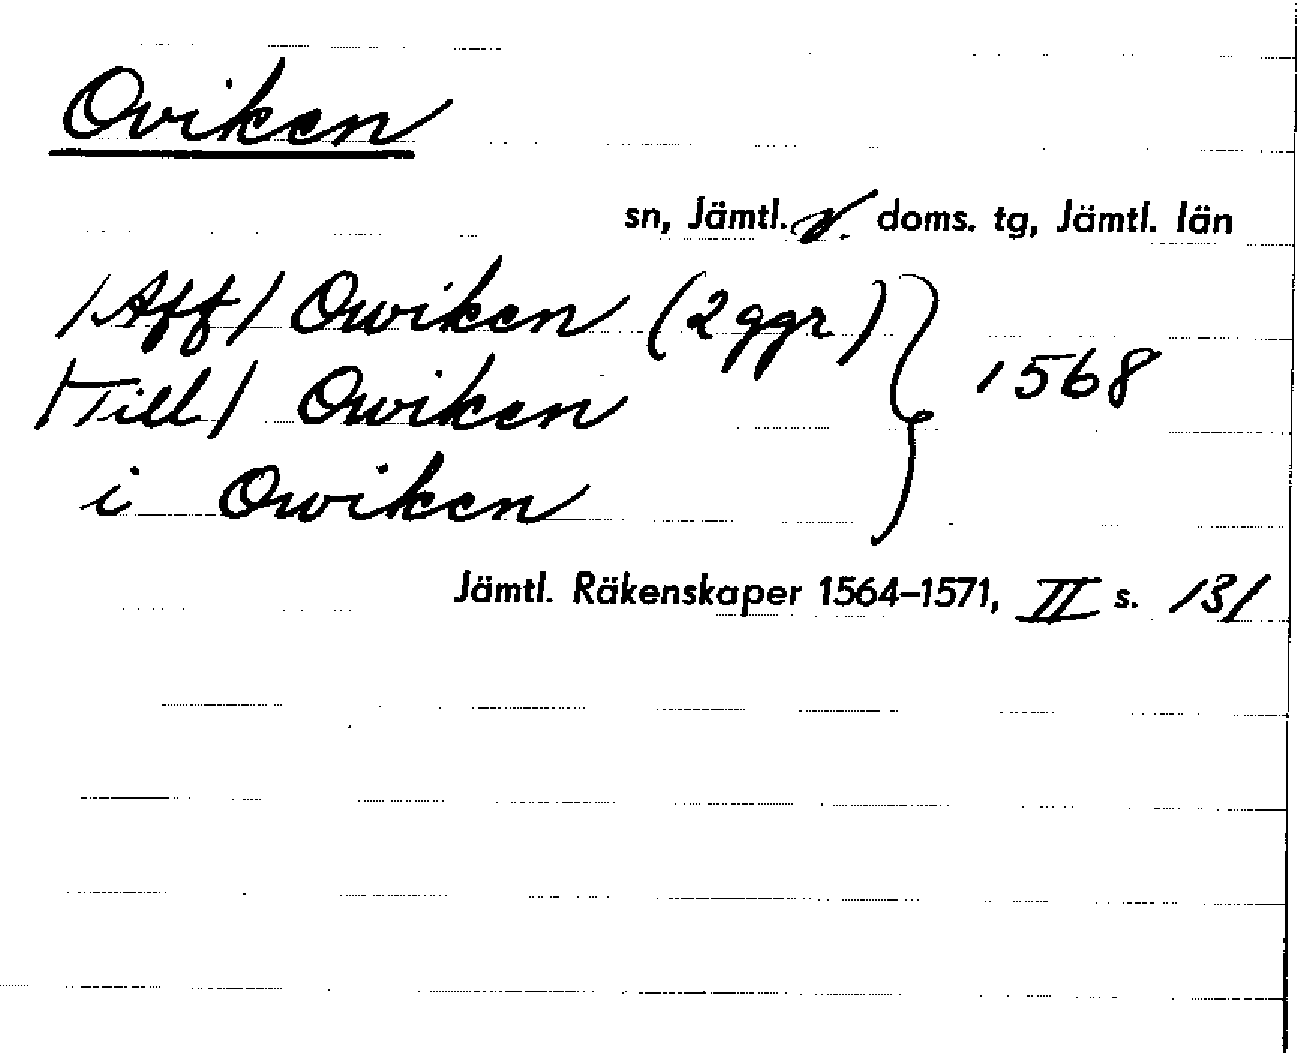 Oviken
sn, Jämtl. v. doms. tg, Jämtl. län
/Aff/ Owiken (2 ggr)
/Till/ Owiken
i Owiken
1568
Jämtl. Räkenskaper 1564–1571, II s. 131